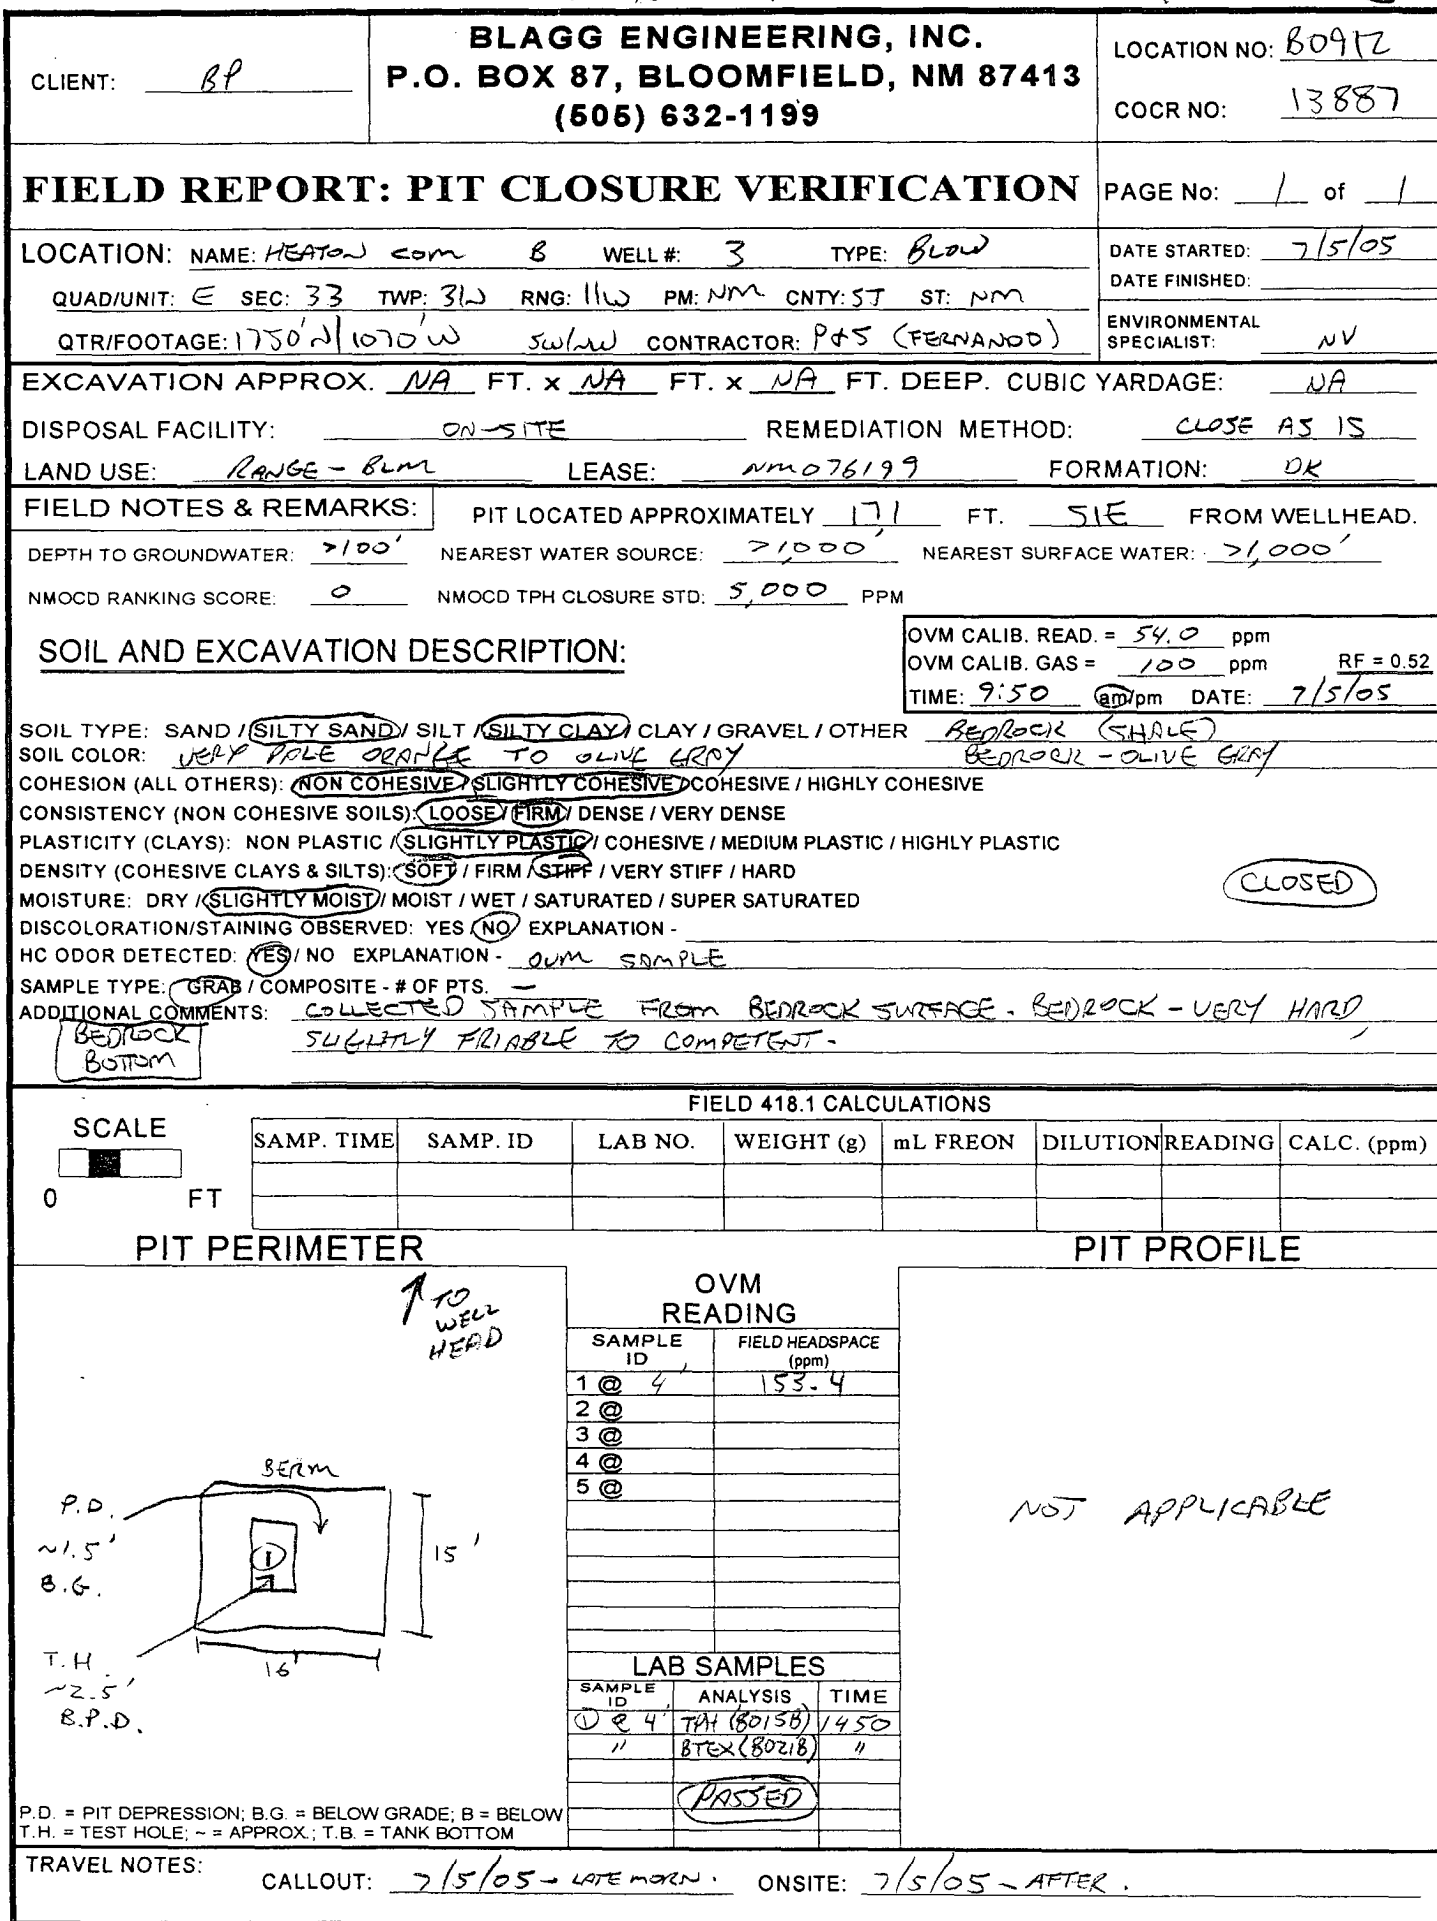 BLAGG ENGINEERING, INC.
P.O. BOX 87, BLOOMFIELD, NM 87413
(505) 632-1199
CLIENT: BP
LOCATION NO: B0912
COCR NO: 13887
FIELD REPORT: PIT CLOSURE VERIFICATION
PAGE No: 1 of 1
LOCATION: NAME: HEATON COM B WELL #: 3 TYPE: BLOW
DATE STARTED: 7/5/05
DATE FINISHED:
QUAD/UNIT: E SEC: 33 TWP: 31N RNG: 11W PM: NM CNTY: SJ ST: NM
QTR/FOOTAGE: 1750'N/1070'W SW/NW CONTRACTOR: P&S (FERNANDO)
ENVIRONMENTAL
SPECIALIST: NV
EXCAVATION APPROX. NA FT. x NA FT. x NA FT. DEEP. CUBIC YARDAGE: NA
DISPOSAL FACILITY: ON-SITE REMEDIATION METHOD: CLOSE AS IS
LAND USE: RANGE - BLM LEASE: NM076199 FORMATION: DK
FIELD NOTES & REMARKS: PIT LOCATED APPROXIMATELY 171 FT. S1E FROM WELLHEAD.
DEPTH TO GROUNDWATER: >100' NEAREST WATER SOURCE: >1,000' NEAREST SURFACE WATER: >1,000'
NMOCD RANKING SCORE: 0 NMOCD TPH CLOSURE STD: 5,000 PPM
SOIL AND EXCAVATION DESCRIPTION:
OVM CALIB. READ. = 54.0 ppm
OVM CALIB. GAS = 100 ppm RF = 0.52
TIME: 9:50 am/pm DATE: 7/5/05
SOIL TYPE: SAND / SILTY SAND / SILT / SILTY CLAY / CLAY / GRAVEL / OTHER BEDROCK (SHALE)
SOIL COLOR: VERY PALE ORANGE TO OLIVE GRAY BEDROCK - OLIVE GRAY
COHESION (ALL OTHERS): NON COHESIVE / SLIGHTLY COHESIVE / COHESIVE / HIGHLY COHESIVE
CONSISTENCY (NON COHESIVE SOILS): LOOSE / FIRM / DENSE / VERY DENSE
PLASTICITY (CLAYS): NON PLASTIC / SLIGHTLY PLASTIC / COHESIVE / MEDIUM PLASTIC / HIGHLY PLASTIC
DENSITY (COHESIVE CLAYS & SILTS): SOFT / FIRM / STIFF / VERY STIFF / HARD
MOISTURE: DRY / SLIGHTLY MOIST / MOIST / WET / SATURATED / SUPER SATURATED
CLOSED
DISCOLORATION/STAINING OBSERVED: YES / NO EXPLANATION -
HC ODOR DETECTED: YES / NO EXPLANATION - OVM SAMPLE
SAMPLE TYPE: GRAB / COMPOSITE - # OF PTS. —
ADDITIONAL COMMENTS: COLLECTED SAMPLE FROM BEDROCK SURFACE. BEDROCK - VERY HARD,
SLIGHTLY FRIABLE TO COMPETENT.
BEDROCK
BOTTOM
FIELD 418.1 CALCULATIONS
SCALE
0 FT
SAMP. TIME SAMP. ID LAB NO. WEIGHT (g) mL FREON DILUTION READING CALC. (ppm)
PIT PERIMETER
PIT PROFILE
TO
WELL
HEAD
OVM
READING
SAMPLE
ID
FIELD HEADSPACE
(ppm)
1 @ 4' 153.4
2 @
3 @
4 @
5 @
BERM
P.D.
~1.5'
B.G.
1
15'
16'
T.H.
~2.5'
B.P.D.
NOT APPLICABLE
LAB SAMPLES
SAMPLE
ID
ANALYSIS TIME
① @ 4' TPH (8015B) 1450
" BTEX (8021B) "
PASSED
P.D. = PIT DEPRESSION; B.G. = BELOW GRADE; B = BELOW
T.H. = TEST HOLE; ~ = APPROX.; T.B. = TANK BOTTOM
TRAVEL NOTES:
CALLOUT: 7/5/05 - LATE MORN. ONSITE: 7/5/05 - AFTER.